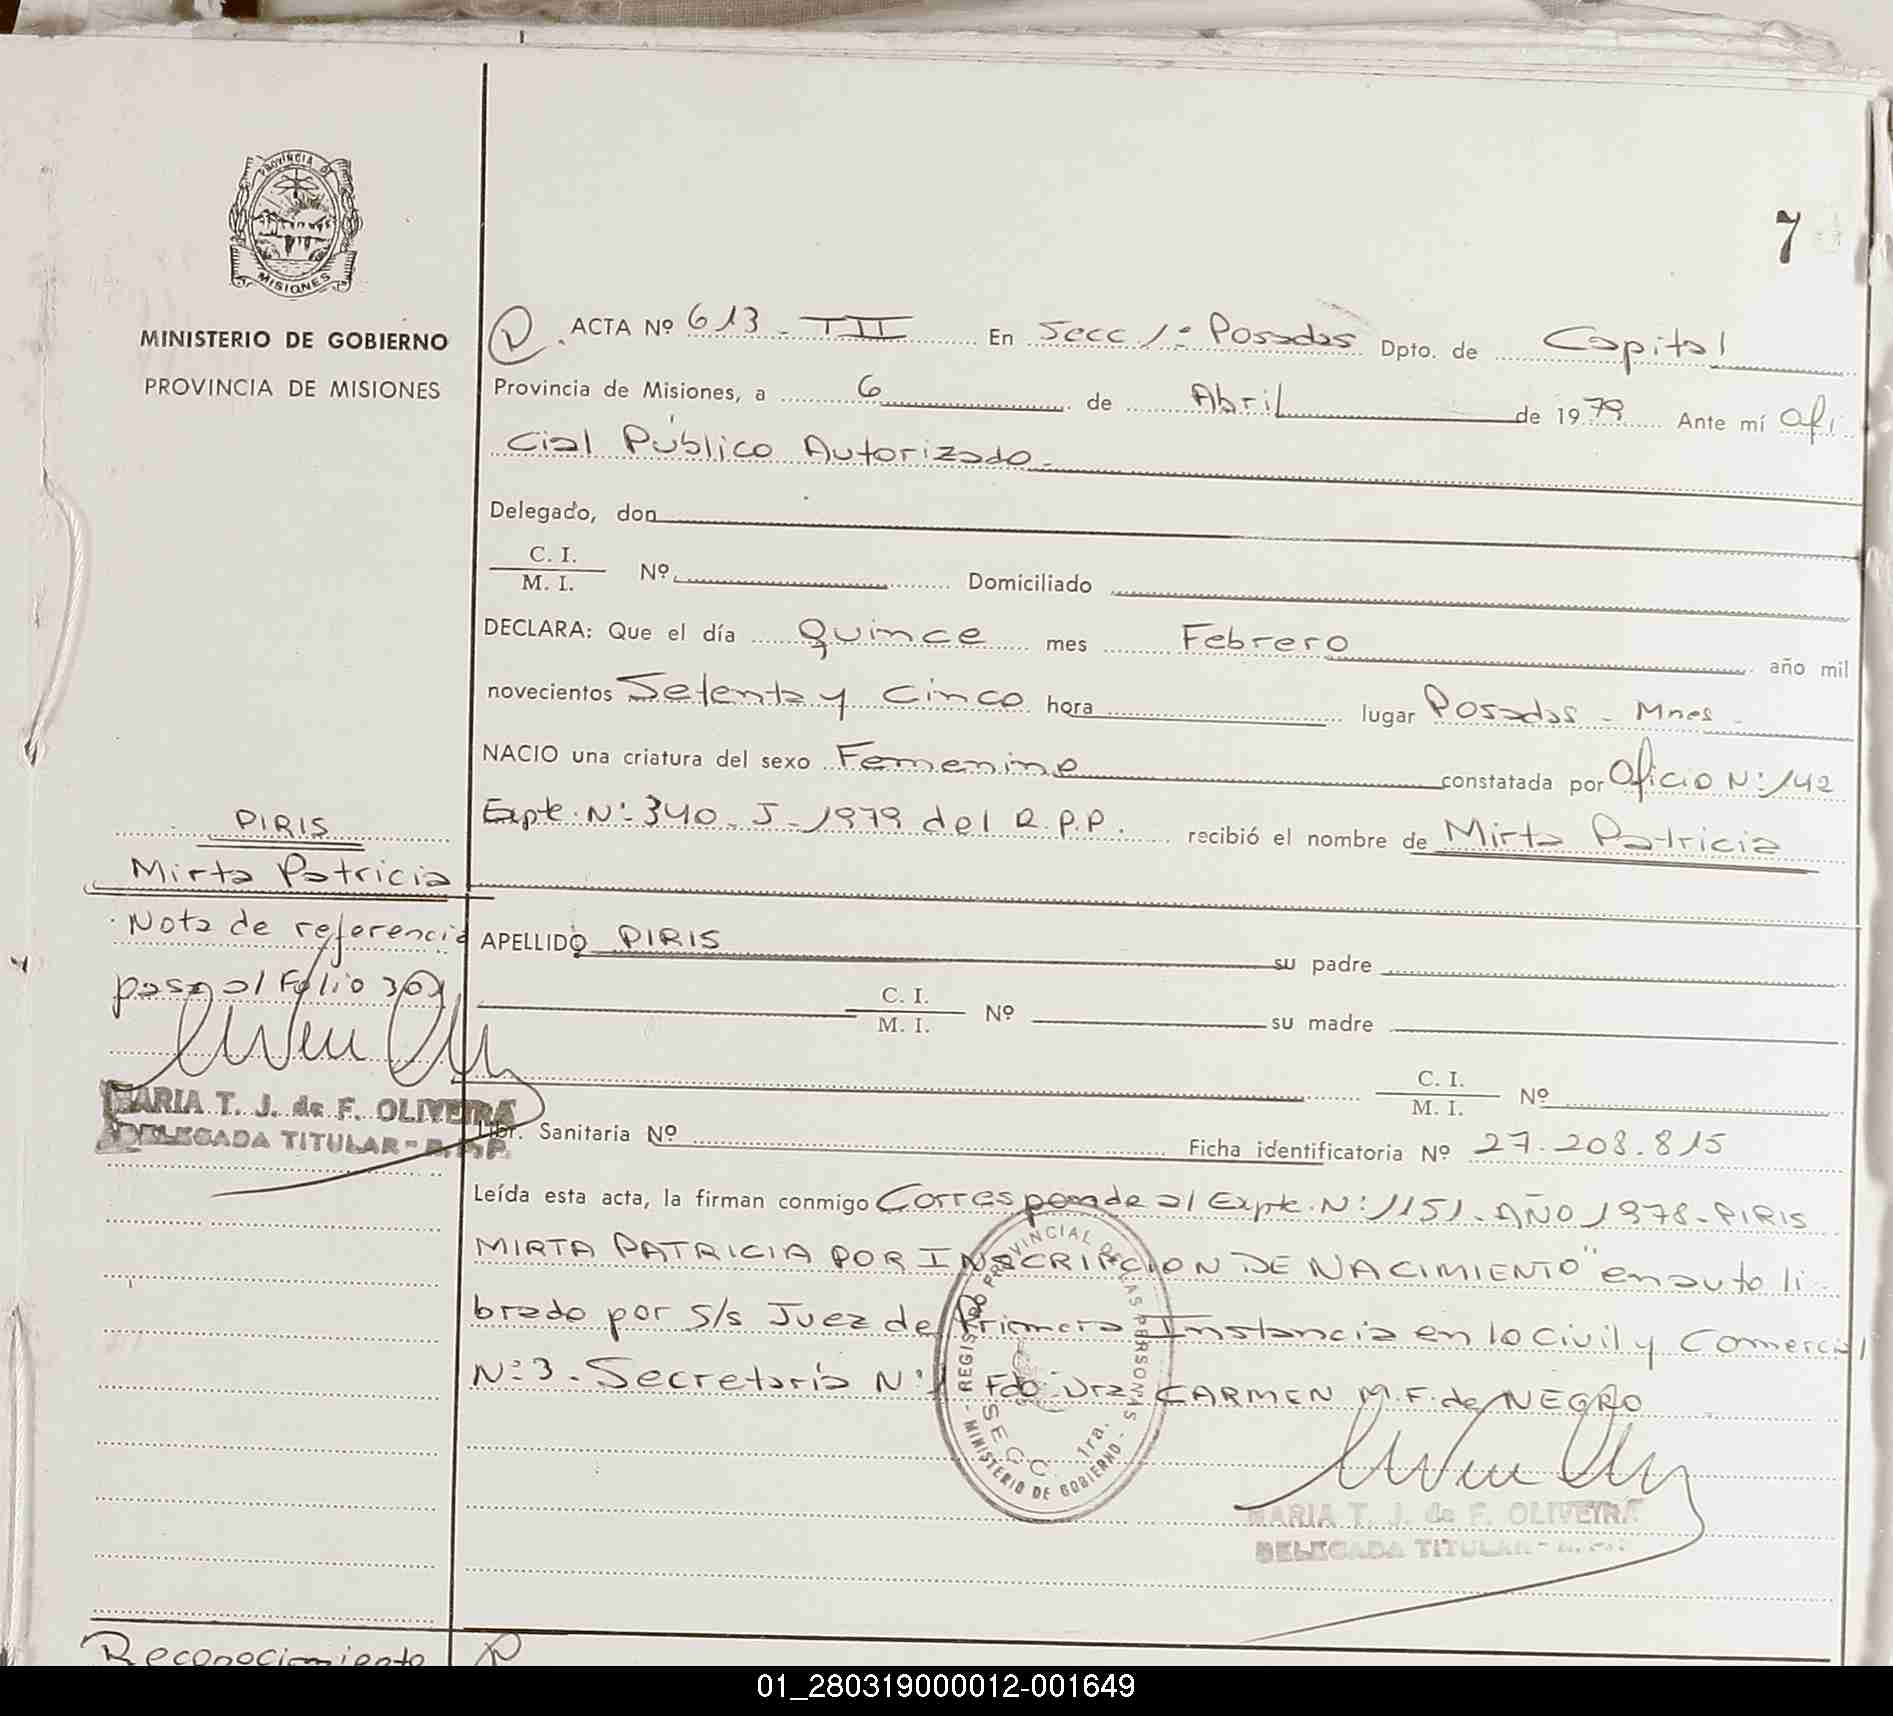 PROVINCIA DE
MISIONES
MINISTERIO DE GOBIERNO
PROVINCIA DE MISIONES
7
ACTA Nº 613 - TII En Secc 1ª Posadas Dpto. de Capital
Provincia de Misiones, a 6 de Abril de 1979 Ante mí Ofi
cial Público Autorizado -
Delegado, don
C. I.
M. I. Nº Domiciliado
DECLARA: Que el día quince mes Febrero año mil
novecientos Setenta y Cinco hora lugar Posadas - Mnes -
NACIO una criatura del sexo Femenino constatada por Oficio Nº 142
Expte. Nº 340 - J - 1979 del R.P.P. recibió el nombre de Mirta Patricia
PIRIS
Mirta Patricia
Nota de referencia
pasa al Folio 301
MARIA T. J. de F. OLIVEIRA
DELEGADA TITULAR - R. P. P.
APELLIDO PIRIS su padre
C. I.
M. I. Nº su madre
C. I.
M. I. Nº
Libr. Sanitaria Nº Ficha identificatoria Nº 27.208.815
Leída esta acta, la firman conmigo Corresponde al Expte. Nº 1151 - AÑO 1978 - PIRIS
MIRTA PATRICIA POR INSCRIPCION DE NACIMIENTO" en auto li-
brado por S/s Juez de Primera Instancia en lo Civil y Comercial
Nº 3 - Secretaría Nº 1 Fdo Dra. CARMEN M.F. de NEGRO
REGISTRO PROVINCIAL DE LAS PERSONAS
SECC. 1ra.
MINISTERIO DE GOBIERNO
MARIA T. J. de F. OLIVEIRA
DELEGADA TITULAR - R. P. P.
Reconocimiento
01_280319000012-001649